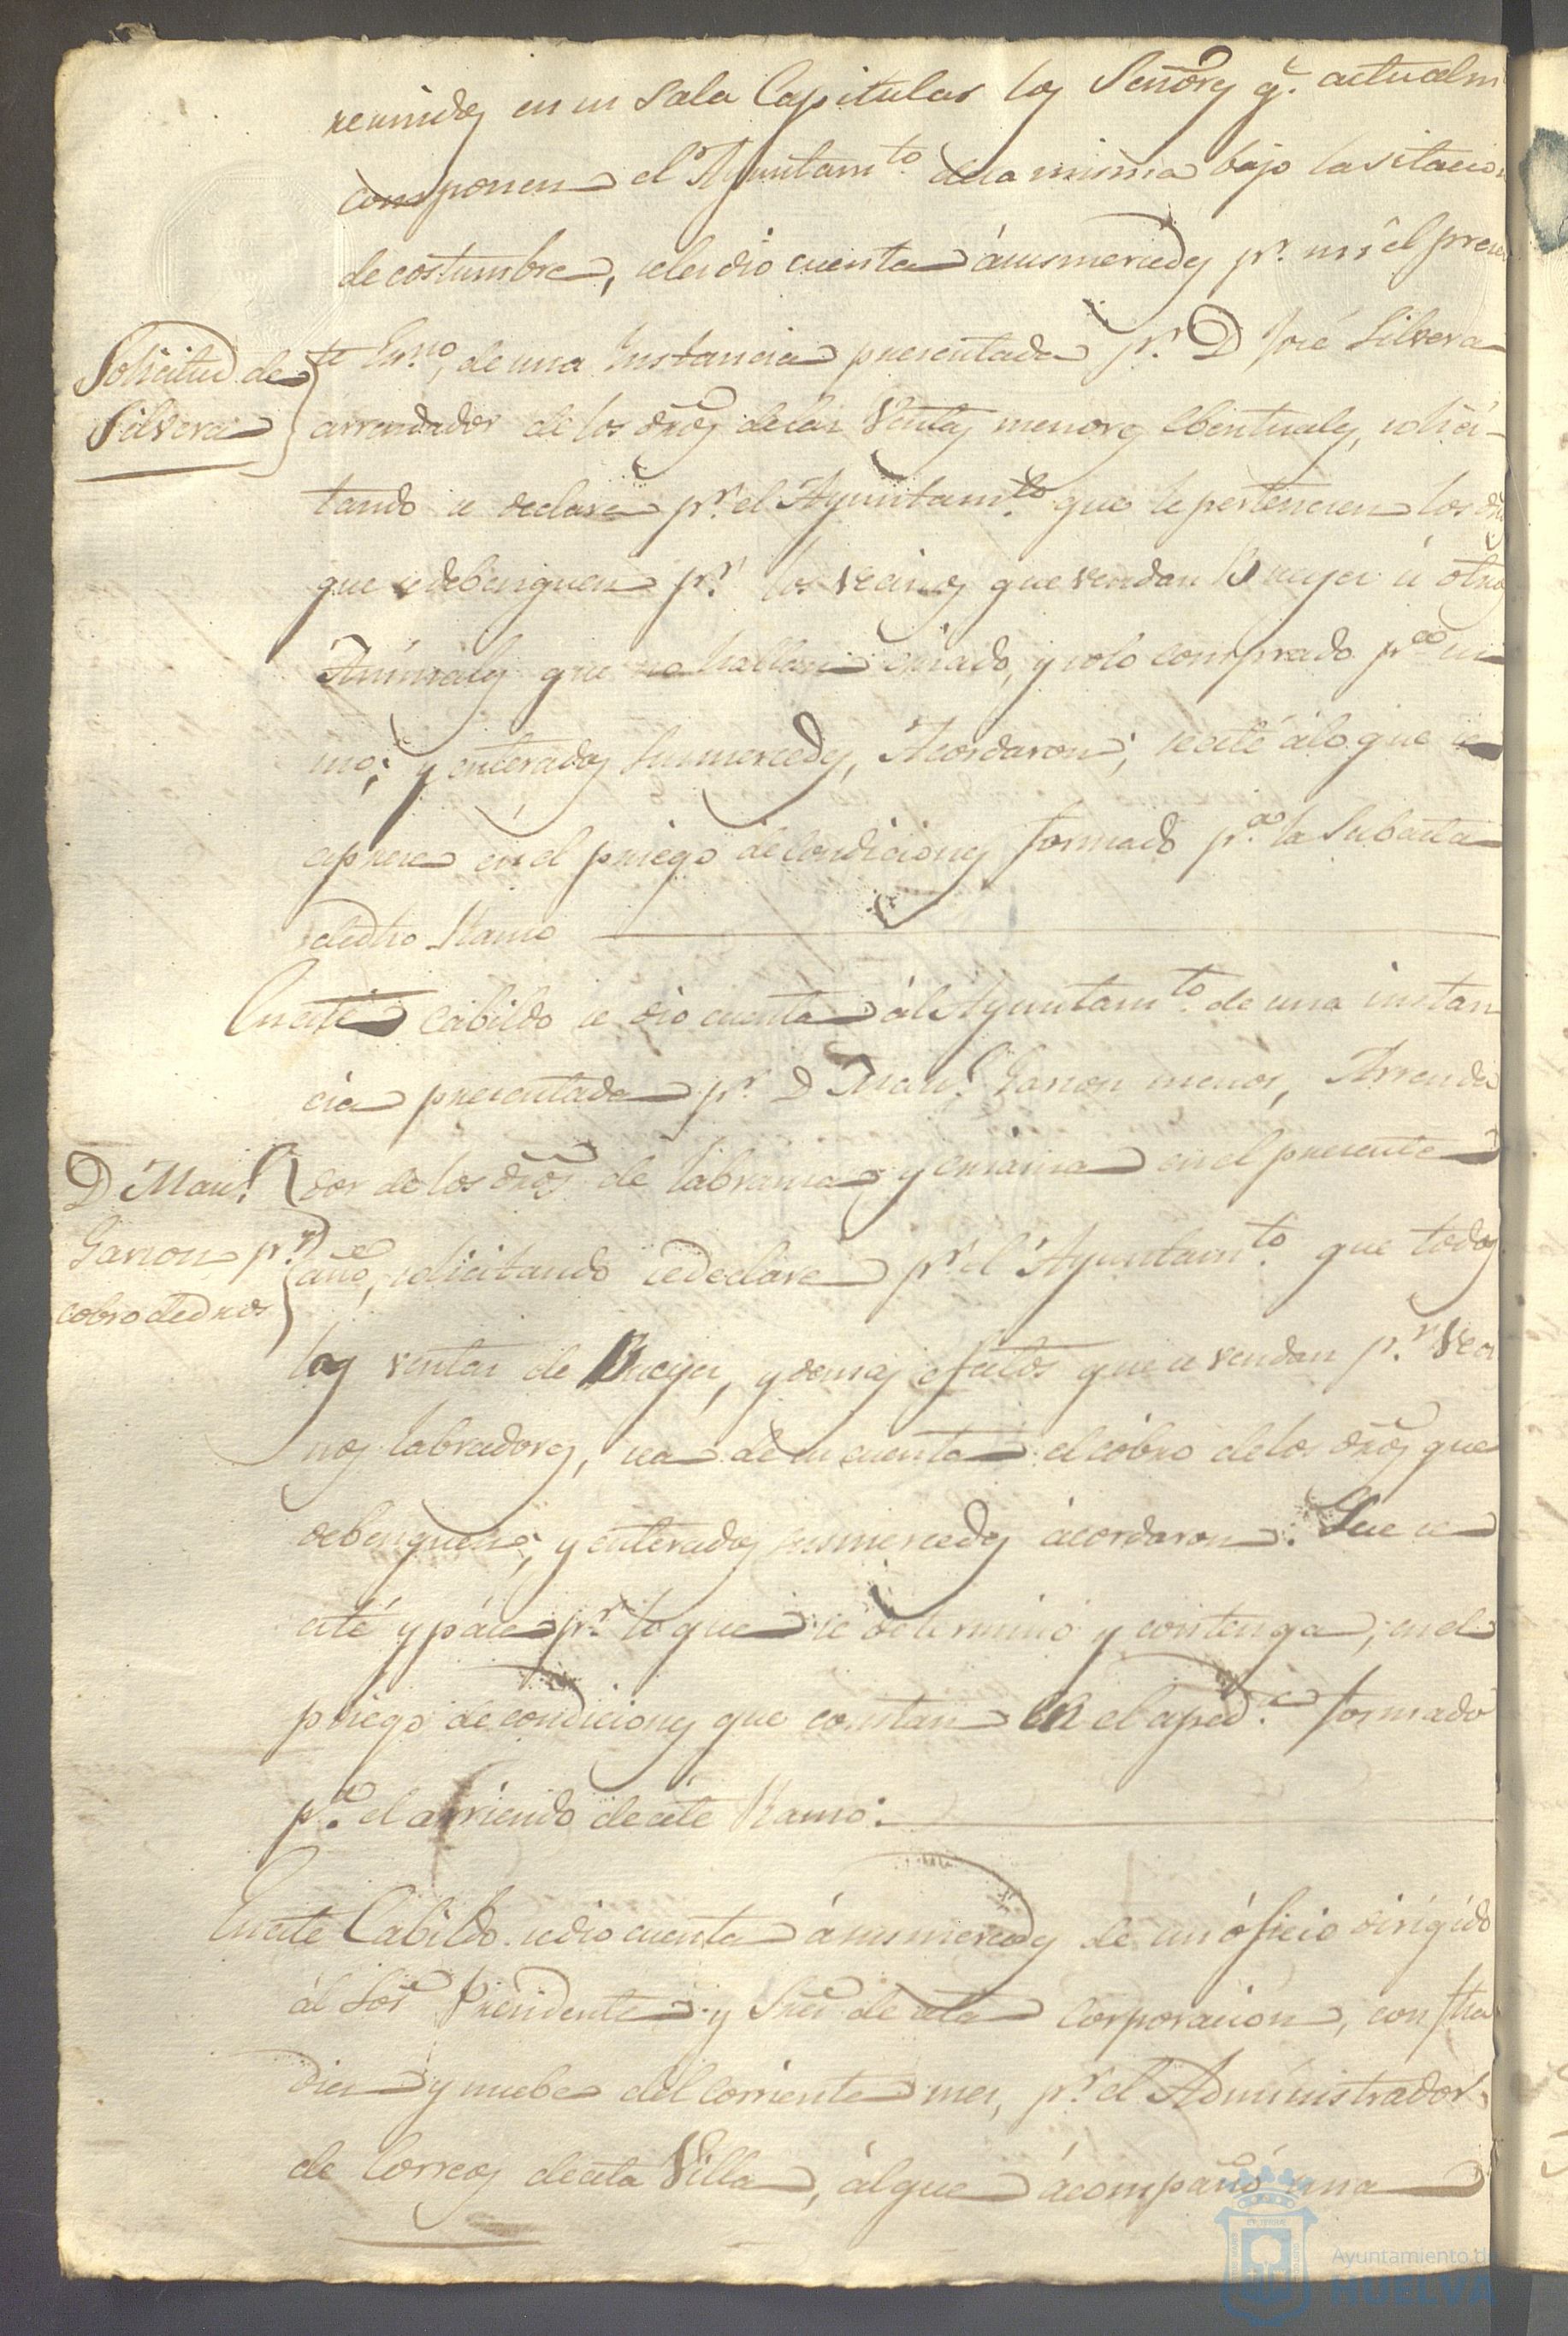 reunidos en su Sala Capitular los Señores q.e actualm
componen el Ayuntam.to dela misma bajo la sitacion
de costumbre, seles dio cuenta ásus mercedes p.r mi el presen
Solicitud de
Silvera
te Es.no, de una Instancia presentada p.r D José Silvera
arrendador de los dr̃os delas Ventas menores ebentuales, solici-
tando se declare p.r el Ayuntam.to que le pertenecen los dr̃os
que sedebenguen p.r los vecinos que vendan Bueyes ú otros
Animales que no hallan criado, y solo comprado p.a si
mo; y enterados sus mercedes, Acordaron; se esté álo que se
esprese en el pliego de Condiciones formado p.a la Subasta
dedho Ramo
Eneste Cabildo se dio cuenta ál Ayuntam.to de una instan
cia presentada p.r D Man.l Garzon menor, Arrenda
D Man.l
Garzon p.r
cobro dedros
dor de los dr̃os de labranza y crianza en el presente
año, solicitando sedeclare p.r el Ayuntam.to que todas
las ventas de Bueyes, y demas efectos que se vendan p.r Veci
nos labradores, sea de su cuenta el cobro delos dr̃os que
debenguen; y enterados sus mercedes ácordaron: Que se
esté y páse p.r lo que se determinó y contenga, en el
pliego de condiciones que constan en el esped.te formado
p.a el arriendo de éste Ramo:
Eneste Cabildo sedio cuenta ásus mercedes de un óficio dirigido
ál Sor Presidente y Sres de esta Corporacion, con fha
diez y nuebe del corriente mes, p.r el Administrador
de Correos de esta Villa, álque ácompañó una
Ayuntamiento de
HUELVA